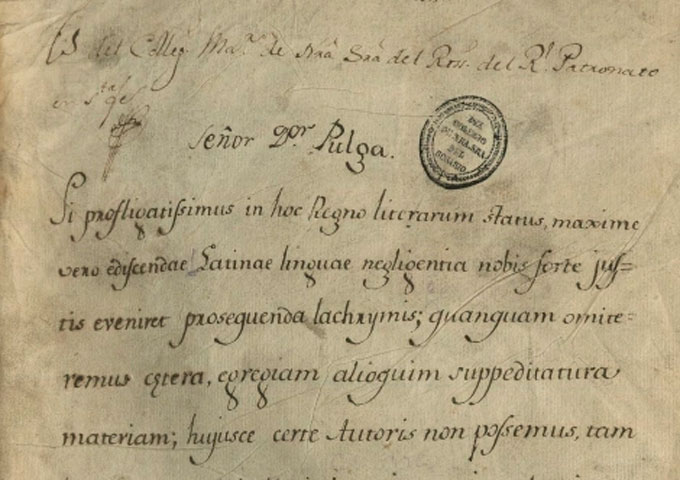 Es del Colleg. Maʳ. de Nrâ. Srâ del Ross. del Rˡ. Patronato
en Sᵗᵃ Fe
Señor Dºʳ Pulga.
DEL
COLEGIO
DE NRA. SRA
DEL
ROSARIO
Si profligatissimus in hoc Regno literarum status, maxime
vero ediscendae Latinae linguae negligentia nobis forte jus=
tis eveniret prosequenda lachrymis; quanquam omite=
remus cętera, egregiam alioquim suppeditatura
materiam; hujusce certe Autoris non possemus, tam